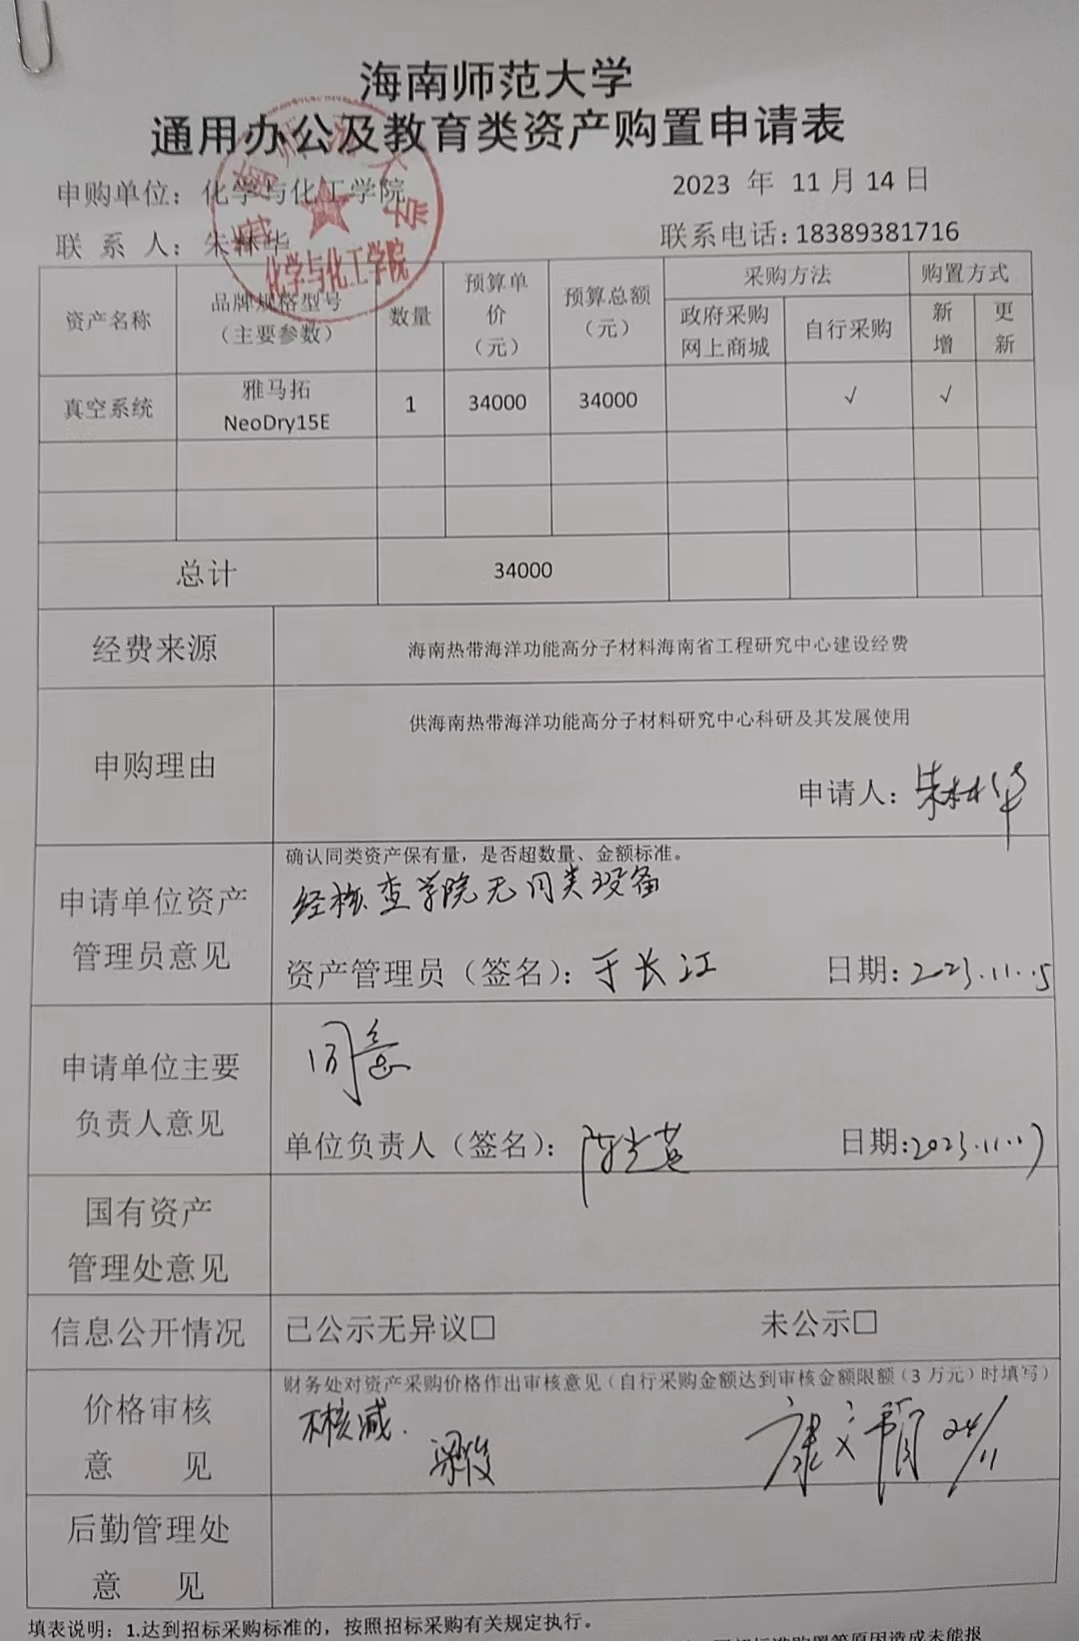 海南师范大学
通用办公及教育类资产购置申请表
申购单位：化学与化工学院
2023 年 11 月 14 日
联 系 人：朱林华
联系电话：18389381716
化学与化工学院
资产名称
品牌规格型号
（主要参数）
数量
预算单
价
（元）
预算总额
（元）
采购方法
购置方式
政府采购
网上商城
自行采购
新
增
更
新
真空系统
雅马拓
NeoDry15E
1
34000
34000
√
√
总计
34000
经费来源
海南热带海洋功能高分子材料海南省工程研究中心建设经费
申购理由
供海南热带海洋功能高分子材料研究中心科研及其发展使用
申请人：朱林华
申请单位资产
管理员意见
确认同类资产保有量，是否超数量、金额标准。
经核查学院无同类设备
资产管理员（签名）：于长江
日期：2023.11.15
申请单位主要
负责人意见
同意
单位负责人（签名）：陈光英
日期：2023.11.17
国有资产
管理处意见
信息公开情况
已公示无异议□
未公示□
价格审核
意 见
财务处对资产采购价格作出审核意见（自行采购金额达到审核金额限额（3 万元）时填写）
不核减.
24/11
后勤管理处
意 见
填表说明：1.达到招标采购标准的，按照招标采购有关规定执行。